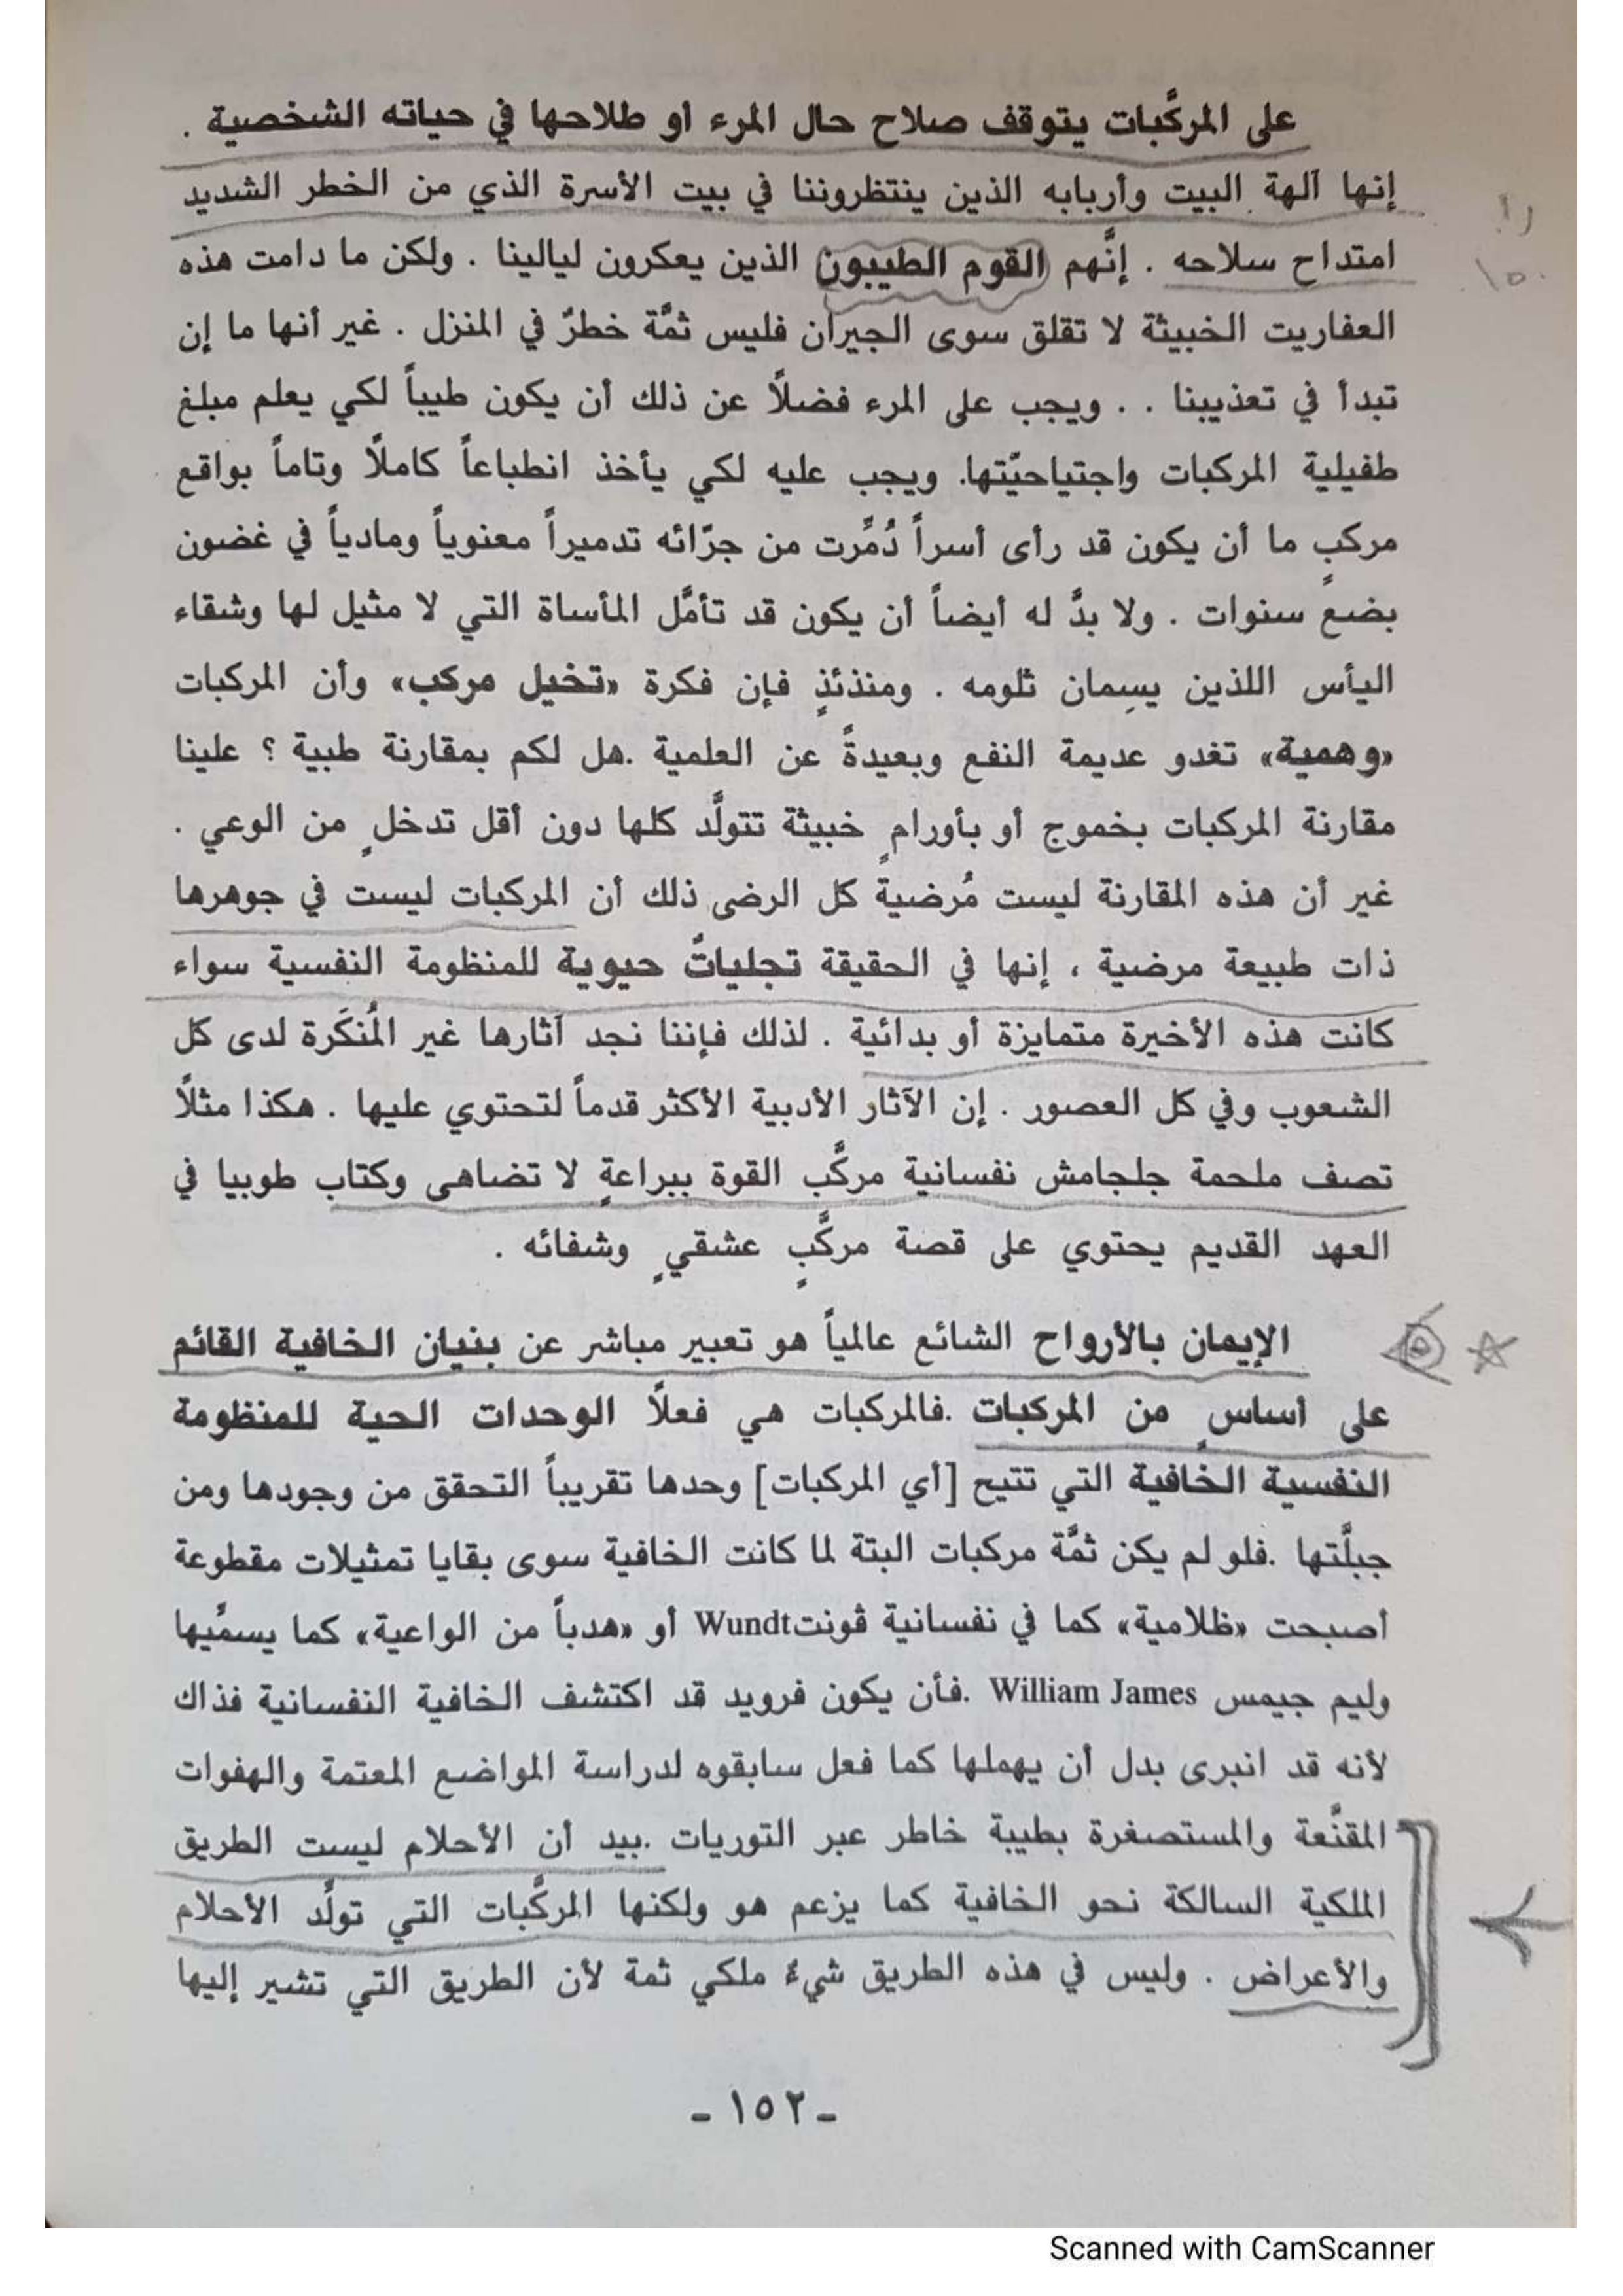 على المركَّبات يتوقف صلاح حال المرء أو طلاحها في حياته الشخصية .
إنها آلهة البيت وأربابه الذين ينتظروننا في بيت الأسرة الذي من الخطر الشديد
امتداح سلاحه . إنَّهم القوم الطيبون الذين يعكرون ليالينا . ولكن ما دامت هذه
العفاريت الخبيثة لا تقلق سوى الجيران فليس ثمَّة خطرٌ في المنزل . غير أنها ما إن
تبدأ في تعذيبنا . . ويجب على المرء فضلًا عن ذلك أن يكون طيباً لكي يعلم مبلغ
طفيلية المركبات واجتياحيّتها. ويجب عليه لكي يأخذ انطباعاً كاملًا وتاماً بواقع
مركبٍ ما أن يكون قد رأى أسراً دُمِّرت من جرّائه تدميراً معنوياً ومادياً في غضون
بضع سنوات . ولا بدَّ له أيضاً أن يكون قد تأمَّل المأساة التي لا مثيل لها وشقاء
اليأس اللذين يسِمان ثلومه . ومنذئذٍ فإن فكرة «تخيل مركب» وأن المركبات
«وهمية» تغدو عديمة النفع وبعيدةً عن العلمية .هل لكم بمقارنة طبية ؟ علينا
مقارنة المركبات بخموج أو بأورامٍ خبيثة تتولَّد كلها دون أقل تدخلٍ من الوعي .
غير أن هذه المقارنة ليست مُرضيةً كل الرضى ذلك أن المركبات ليست في جوهرها
ذات طبيعة مرضية ، إنها في الحقيقة تجلياتٌ حيوية للمنظومة النفسية سواء
كانت هذه الأخيرة متمايزة أو بدائية . لذلك فإننا نجد آثارها غير المُنكَرة لدى كل
الشعوب وفي كل العصور . إن الآثار الأدبية الأكثر قدماً لتحتوي عليها . هكذا مثلًا
تصف ملحمة جلجامش نفسانية مركَّب القوة ببراعةٍ لا تضاهى وكتاب طوبيا في
العهد القديم يحتوي على قصة مركَّبٍ عشقيٍ وشفائه .
الإيمان بالأرواح الشائع عالمياً هو تعبير مباشر عن بنيان الخافية القائم
على أساسٍ من المركبات .فالمركبات هي فعلًا الوحدات الحية للمنظومة
النفسية الخافية التي تتيح [أي المركبات] وحدها تقريباً التحقق من وجودها ومن
جبلَّتها .فلو لم يكن ثمَّة مركبات البتة لما كانت الخافية سوى بقايا تمثيلات مقطوعة
أصبحت «ظلامية» كما في نفسانية ڤونتWundt أو «هدباً من الواعية» كما يسمِّيها
وليم جيمس William James .فأن يكون فرويد قد اكتشف الخافية النفسانية فذاك
لأنه قد انبرى بدل أن يهملها كما فعل سابقوه لدراسة المواضع المعتمة والهفوات
المقنَّعة والمستصغرة بطيبة خاطر عبر التوريات .بيد أن الأحلام ليست الطريق
الملكية السالكة نحو الخافية كما يزعم هو ولكنها المركَّبات التي تولِّد الأحلام
والأعراض . وليس في هذه الطريق شيءٌ ملكي ثمة لأن الطريق التي تشير إليها
- ١٥٢ -
Scanned with CamScanner